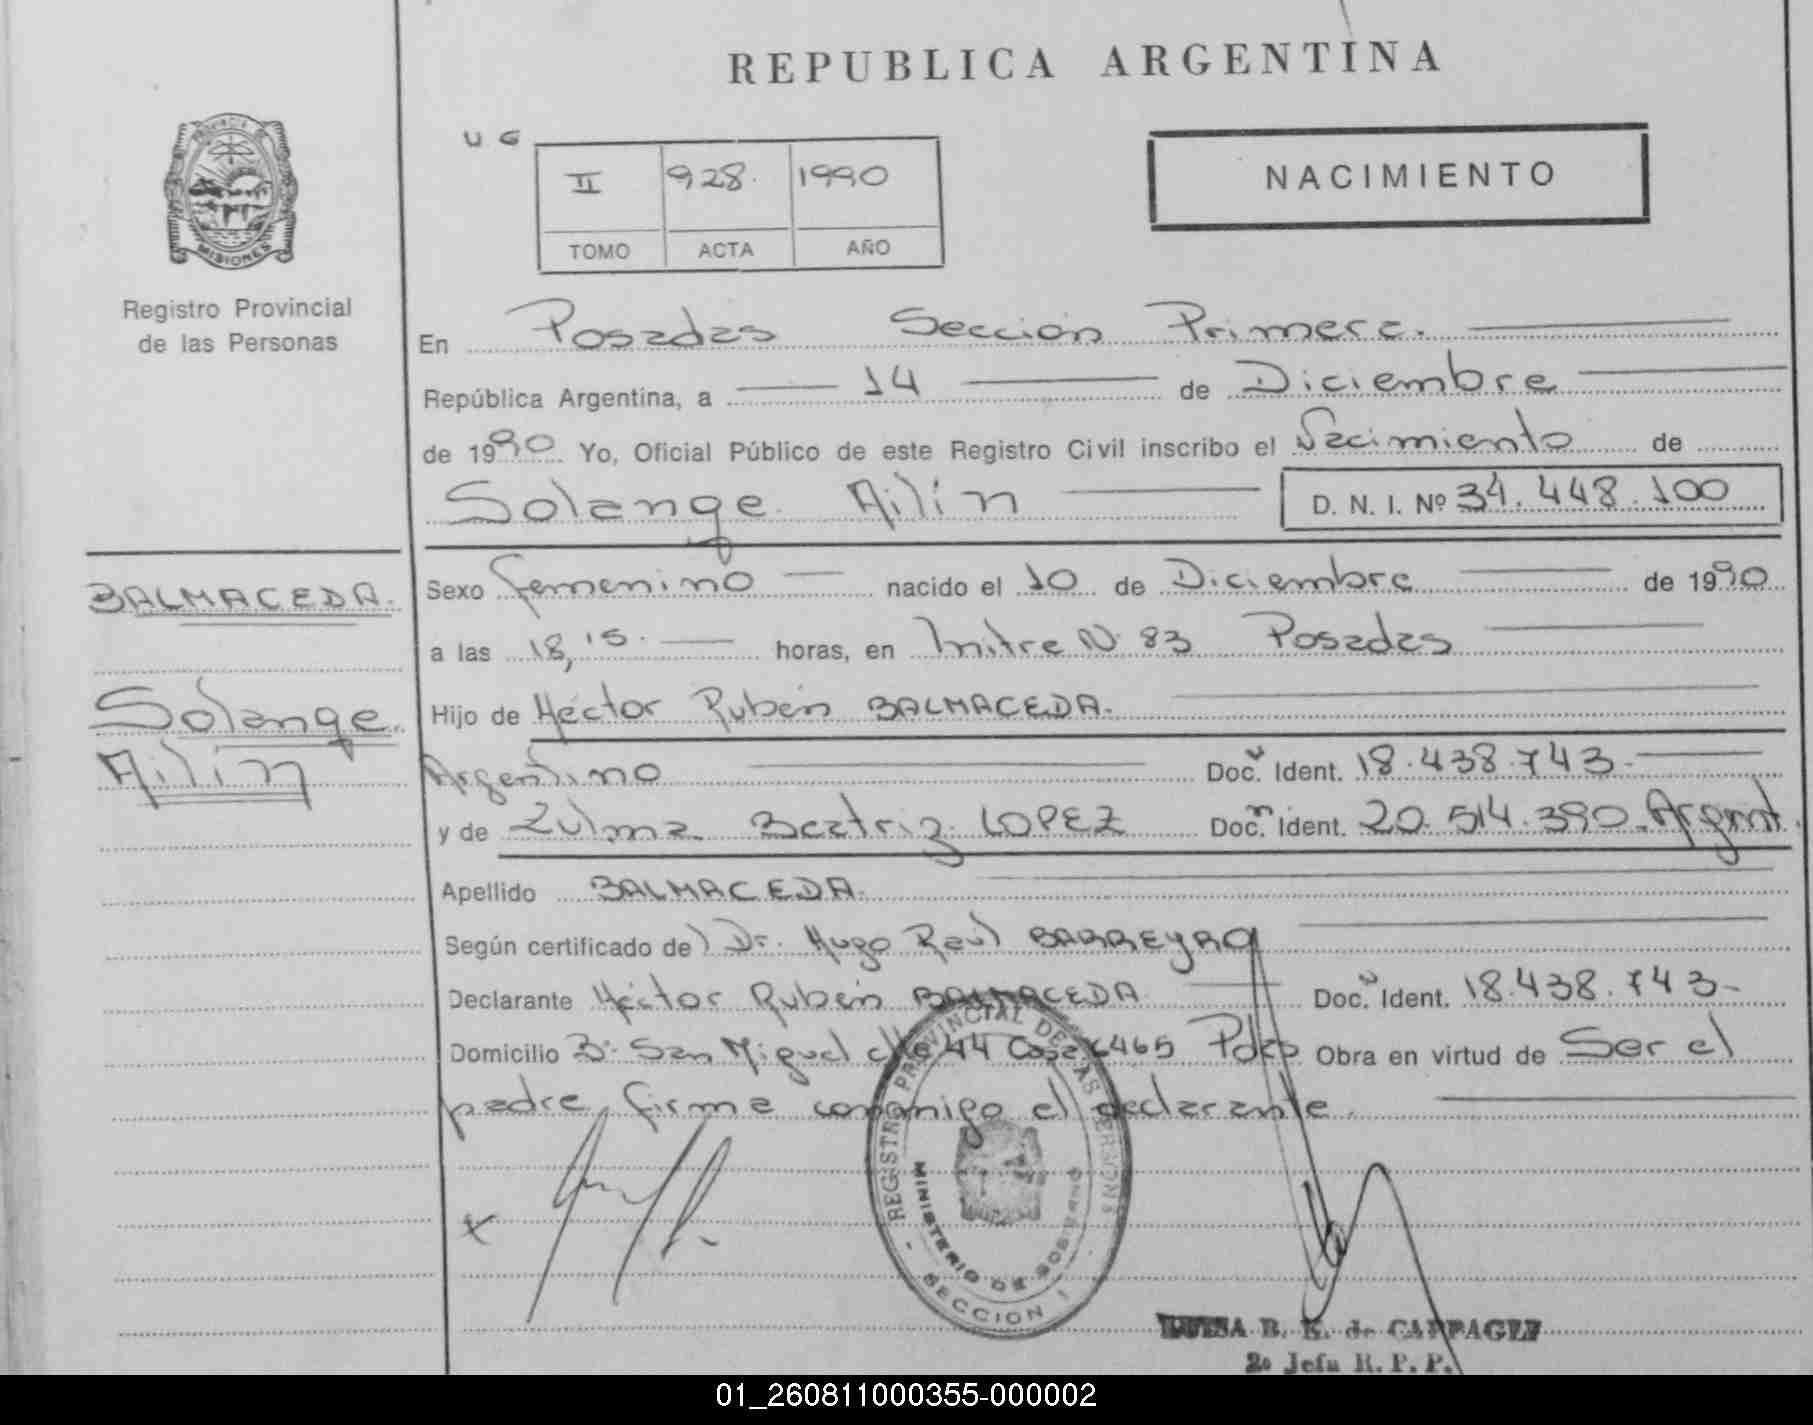 REPUBLICA ARGENTINA
U G
II 928. 1990
TOMO ACTA AÑO
NACIMIENTO
PROVINCIA DE
MISIONES
Registro Provincial
de las Personas
En Posadas Sección Primera.
República Argentina, a 14 de Diciembre
de 1990 Yo, Oficial Público de este Registro Civil inscribo el Nacimiento de
Solange Ailín
D. N. I. Nº 34.448.100
BALMACEDA.
Solange.
Ailín
Sexo femenino nacido el 10 de Diciembre de 1990
a las 18,15. horas, en Mitre Nº 83 Posadas
Hijo de Héctor Rubén BALMACEDA.
Argentino Doc. Ident. 18.438.743.
y de Zulma Beatriz LOPEZ Doc. Ident. 20.514.390. Argent.
Apellido BALMACEDA.
Según certificado del Dr. Hugo Raúl BARREYRO
Declarante Héctor Rubén BALMACEDA Doc. Ident. 18.438.743-
Domicilio Bº San Miguel 44 Casa 6465 Pdas Obra en virtud de Ser el
padre, firma conmigo el declarante.
REGISTRO PROVINCIAL DE LAS PERSONAS
MINISTERIO DE GOBIERNO
SECCION 1
LUISA B. K. de
2º Jefa R. P. P.
01_260811000355-000002